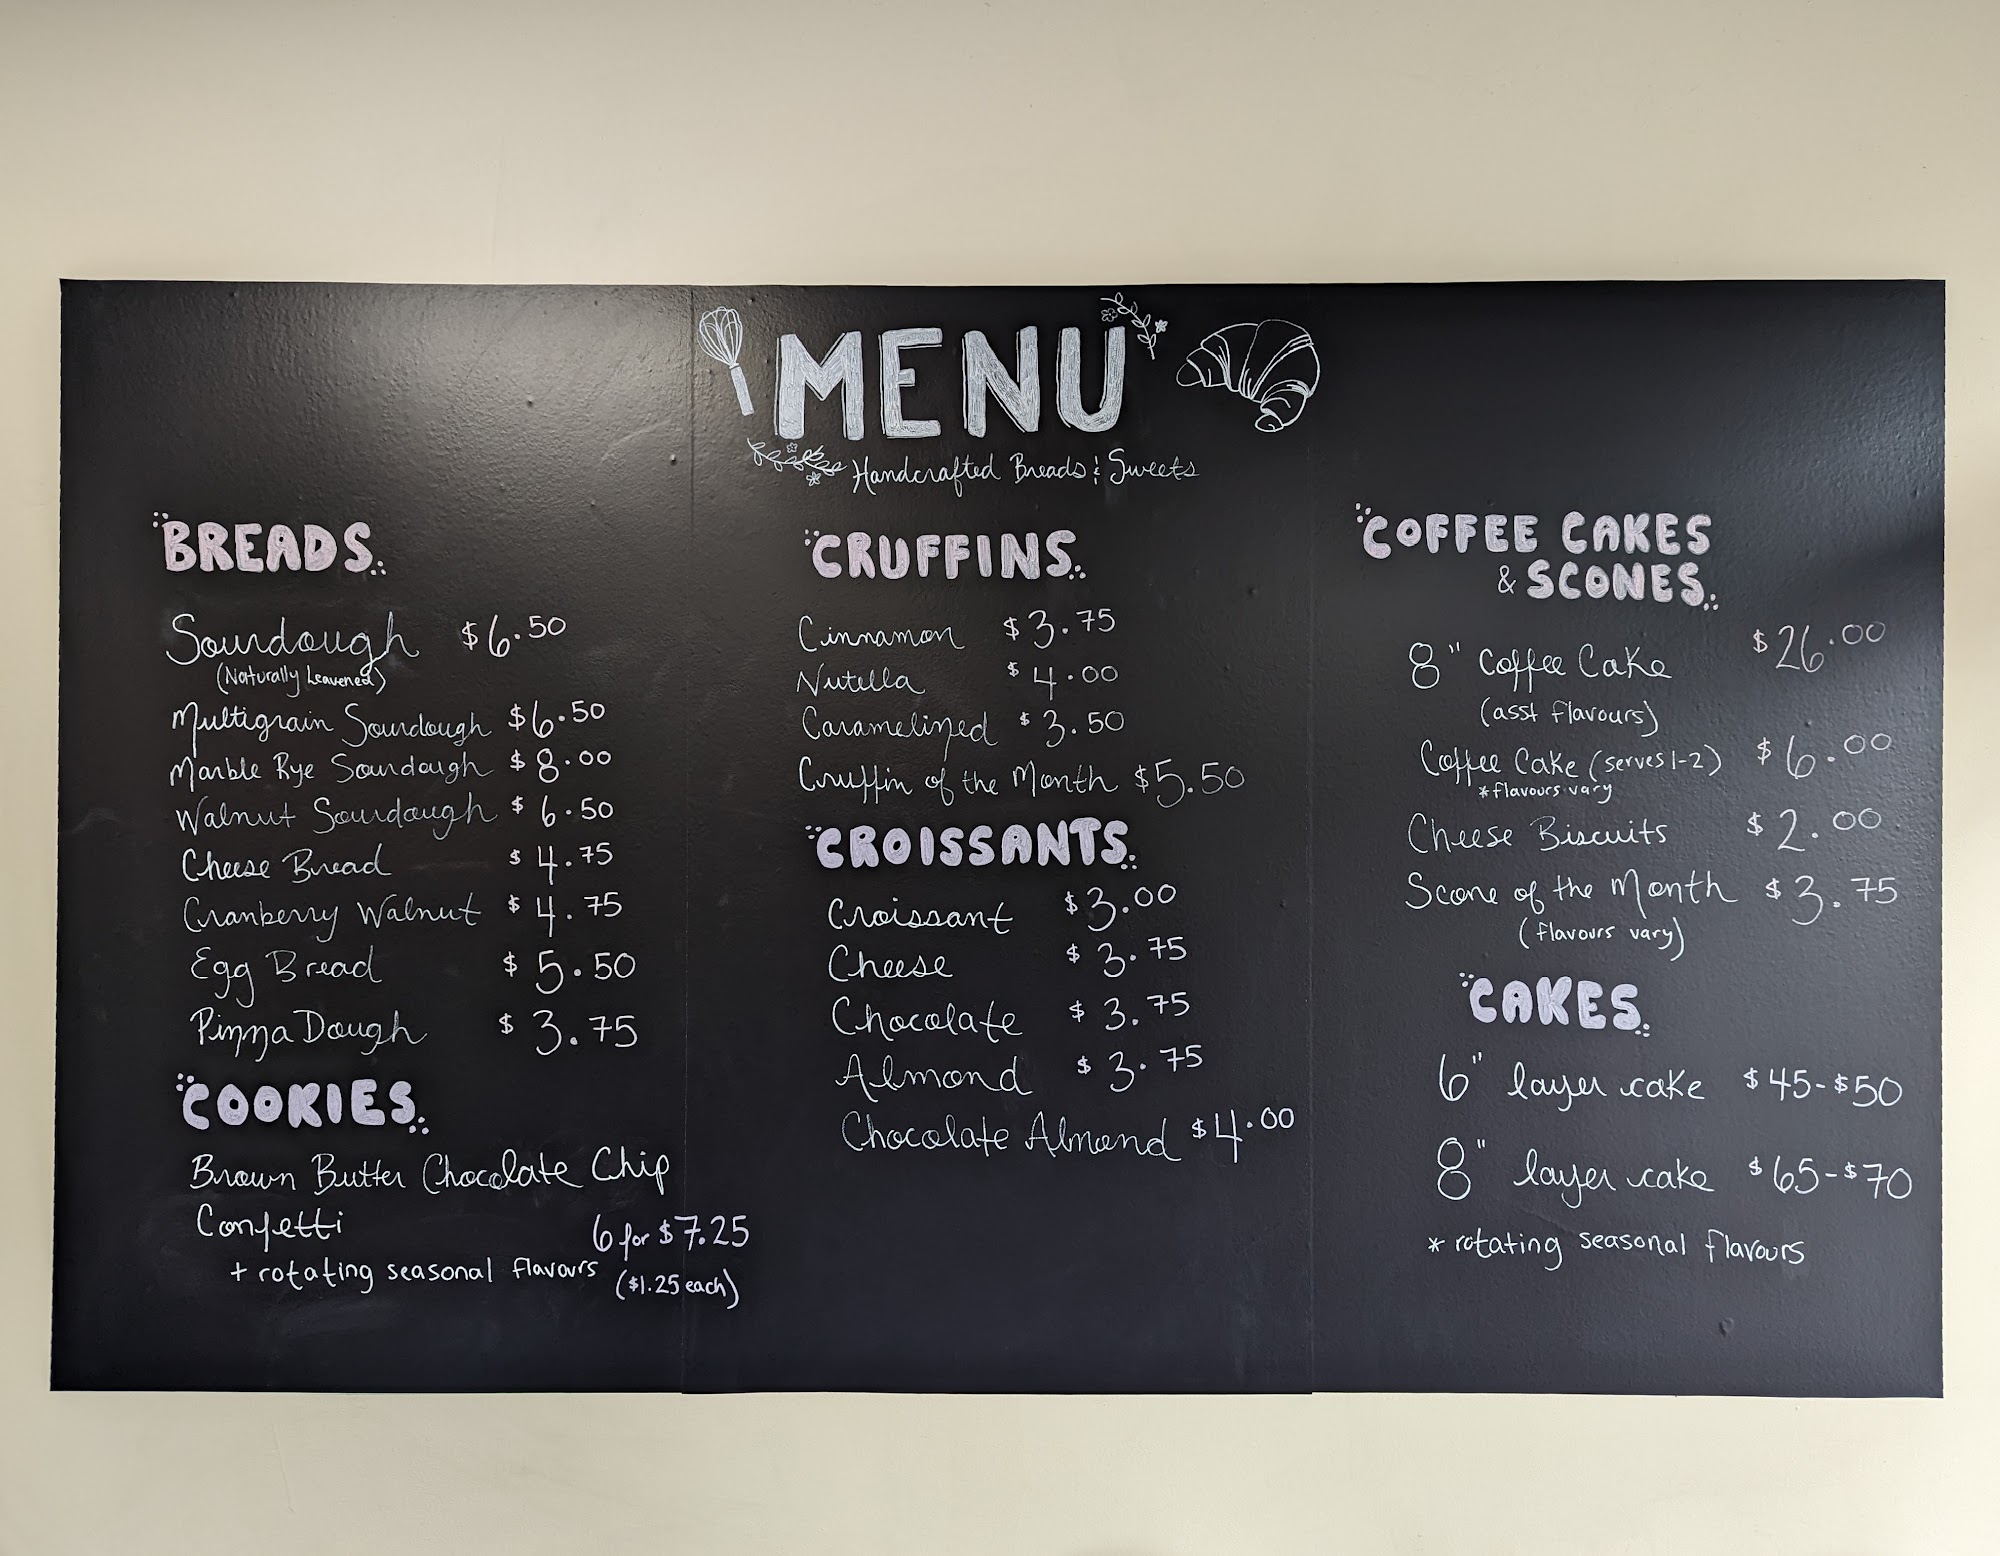 MENU
Handcrafted Breads & Sweets
BREADS
Sourdough $6.50
(Naturally Leavened)
Multigrain Sourdough $6.50
Marble Rye Sourdough $8.00
Walnut Sourdough $6.50
Cheese Bread $4.75
Cranberry Walnut $4.75
Egg Bread $5.50
Pizza Dough $3.75
COOKIES
Brown Butter Chocolate Chip
Confetti 6 for $7.25
+ rotating seasonal flavours ($1.25 each)
CRUFFINS
Cinnamon $3.75
Nutella $4.00
Caramelized $3.50
Cruffin of the Month $5.50
CROISSANTS
Croissant $3.00
Cheese $3.75
Chocolate $3.75
Almond $3.75
Chocolate Almond $4.00
COFFEE CAKES
& SCONES
8" Coffee Cake $26.00
(asst flavours)
Coffee Cake (serves 1-2) $6.00
*flavours vary
Cheese Biscuits $2.00
Scone of the Month $3.75
(flavours vary)
CAKES
6" layer cake $45-$50
8" layer cake $65-$70
* rotating seasonal flavours